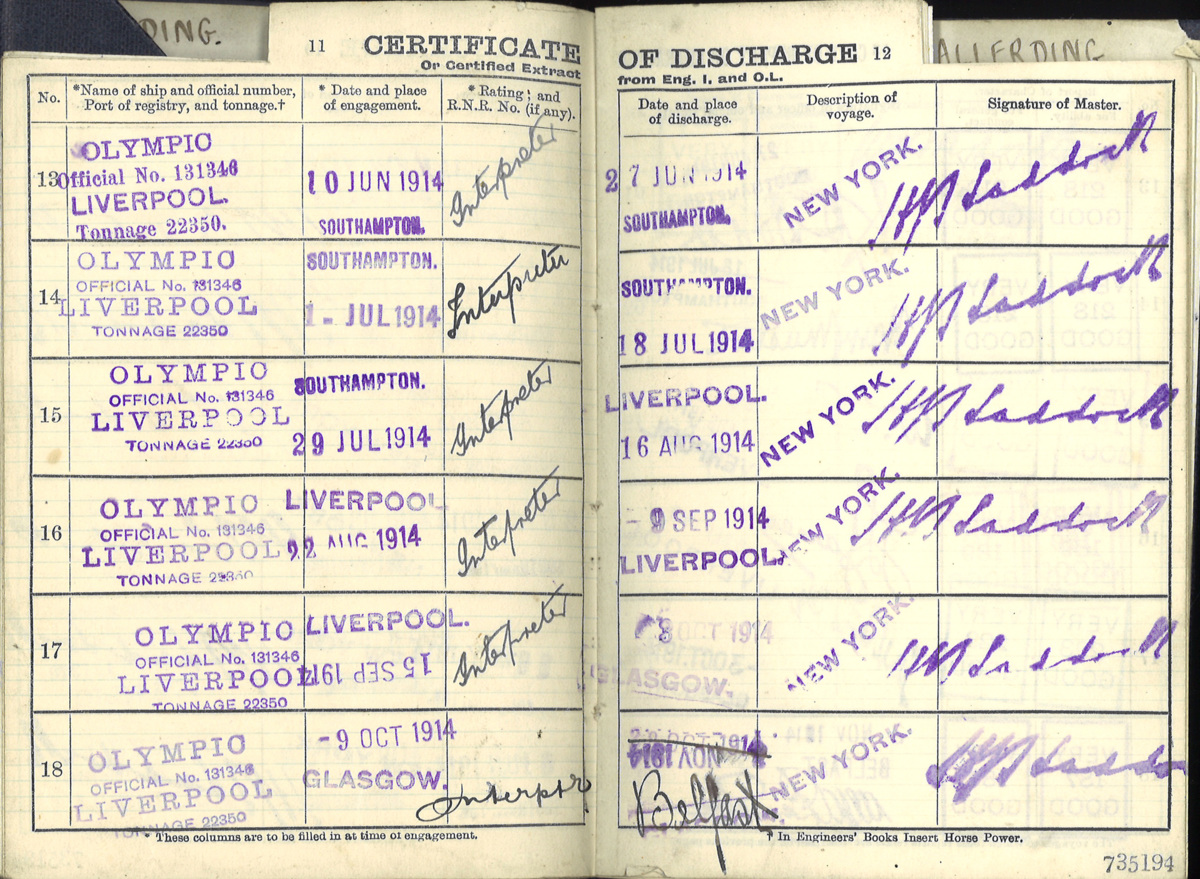 DING.
ALLERDING
11 CERTIFICATE OF DISCHARGE 12
Or Certified Extract from Eng. I. and O.L.
No.
*Name of ship and official number, Port of registry, and tonnage.†
* Date and place of engagement.
* Rating; and R.N.R. No. (if any).
Date and place of discharge.
Description of voyage.
Signature of Master.
13
OLYMPIC
Official No. 131346
LIVERPOOL.
Tonnage 22350.
10 JUN 1914
SOUTHAMPTON.
Interpreter
27 JUN 1914
SOUTHAMPTON.
NEW YORK.
Haddock
14
OLYMPIC
OFFICIAL No. 131346
LIVERPOOL
TONNAGE 22350
SOUTHAMPTON.
1- JUL 1914
Interpreter
SOUTHAMPTON.
18 JUL 1914
NEW YORK.
Haddock
15
OLYMPIC
OFFICIAL No. 131346
LIVERPOOL
TONNAGE 22350
SOUTHAMPTON.
29 JUL 1914
Interpreter
LIVERPOOL.
16 AUG 1914
NEW YORK.
Haddock
16
OLYMPIC
OFFICIAL No. 131346
LIVERPOOL
TONNAGE 22350
LIVERPOOL
22 AUG 1914
Interpreter
- 9 SEP 1914
LIVERPOOL.
NEW YORK.
Haddock
17
OLYMPIC
OFFICIAL No. 131346
LIVERPOOL
TONNAGE 22350
LIVERPOOL.
15 SEP 1914
Interpreter
3 OCT 1914
GLASGOW.
NEW YORK.
Haddock
18
OLYMPIC
OFFICIAL No. 131346
LIVERPOOL
TONNAGE 22350
-9 OCT 1914
GLASGOW.
Interpr
NOV 1914
Belfast
NEW YORK.
Haddock
* These columns are to be filled in at time of engagement.
† In Engineers' Books Insert Horse Power.
735194